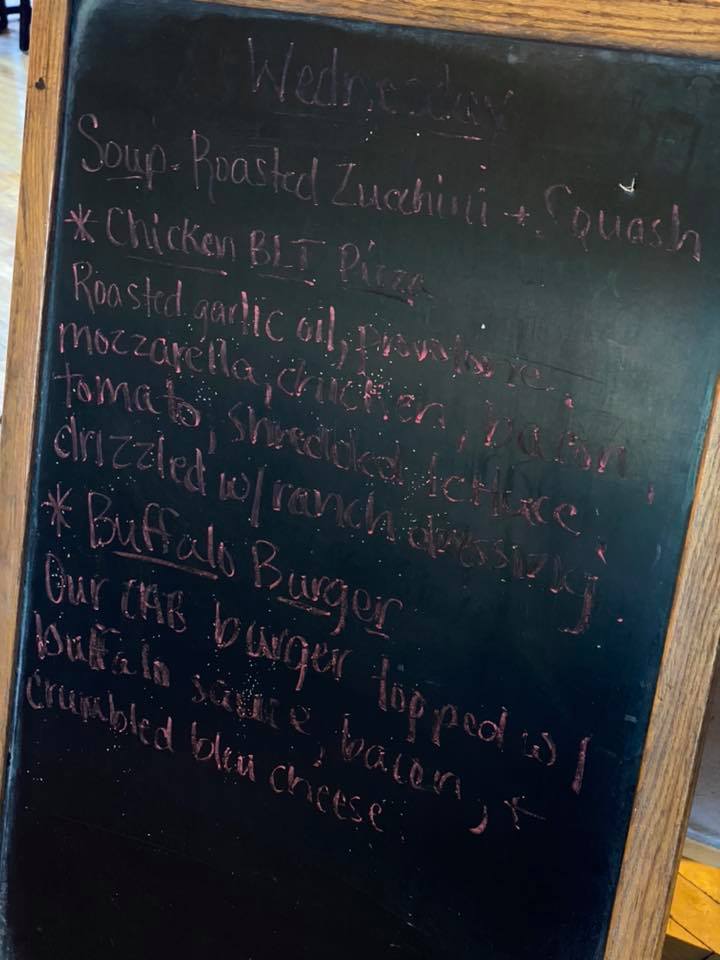 Wednesday
Soup - Roasted Zucchini + Squash
* Chicken BLT Pizza
Roasted garlic oil, provolone,
mozzarella, chicken, bacon,
tomato, shredded lettuce,
drizzled w/ ranch dressing.
* Buffalo Burger
Our CAB burger topped w/
buffalo sauce, bacon, +
crumbled bleu cheese